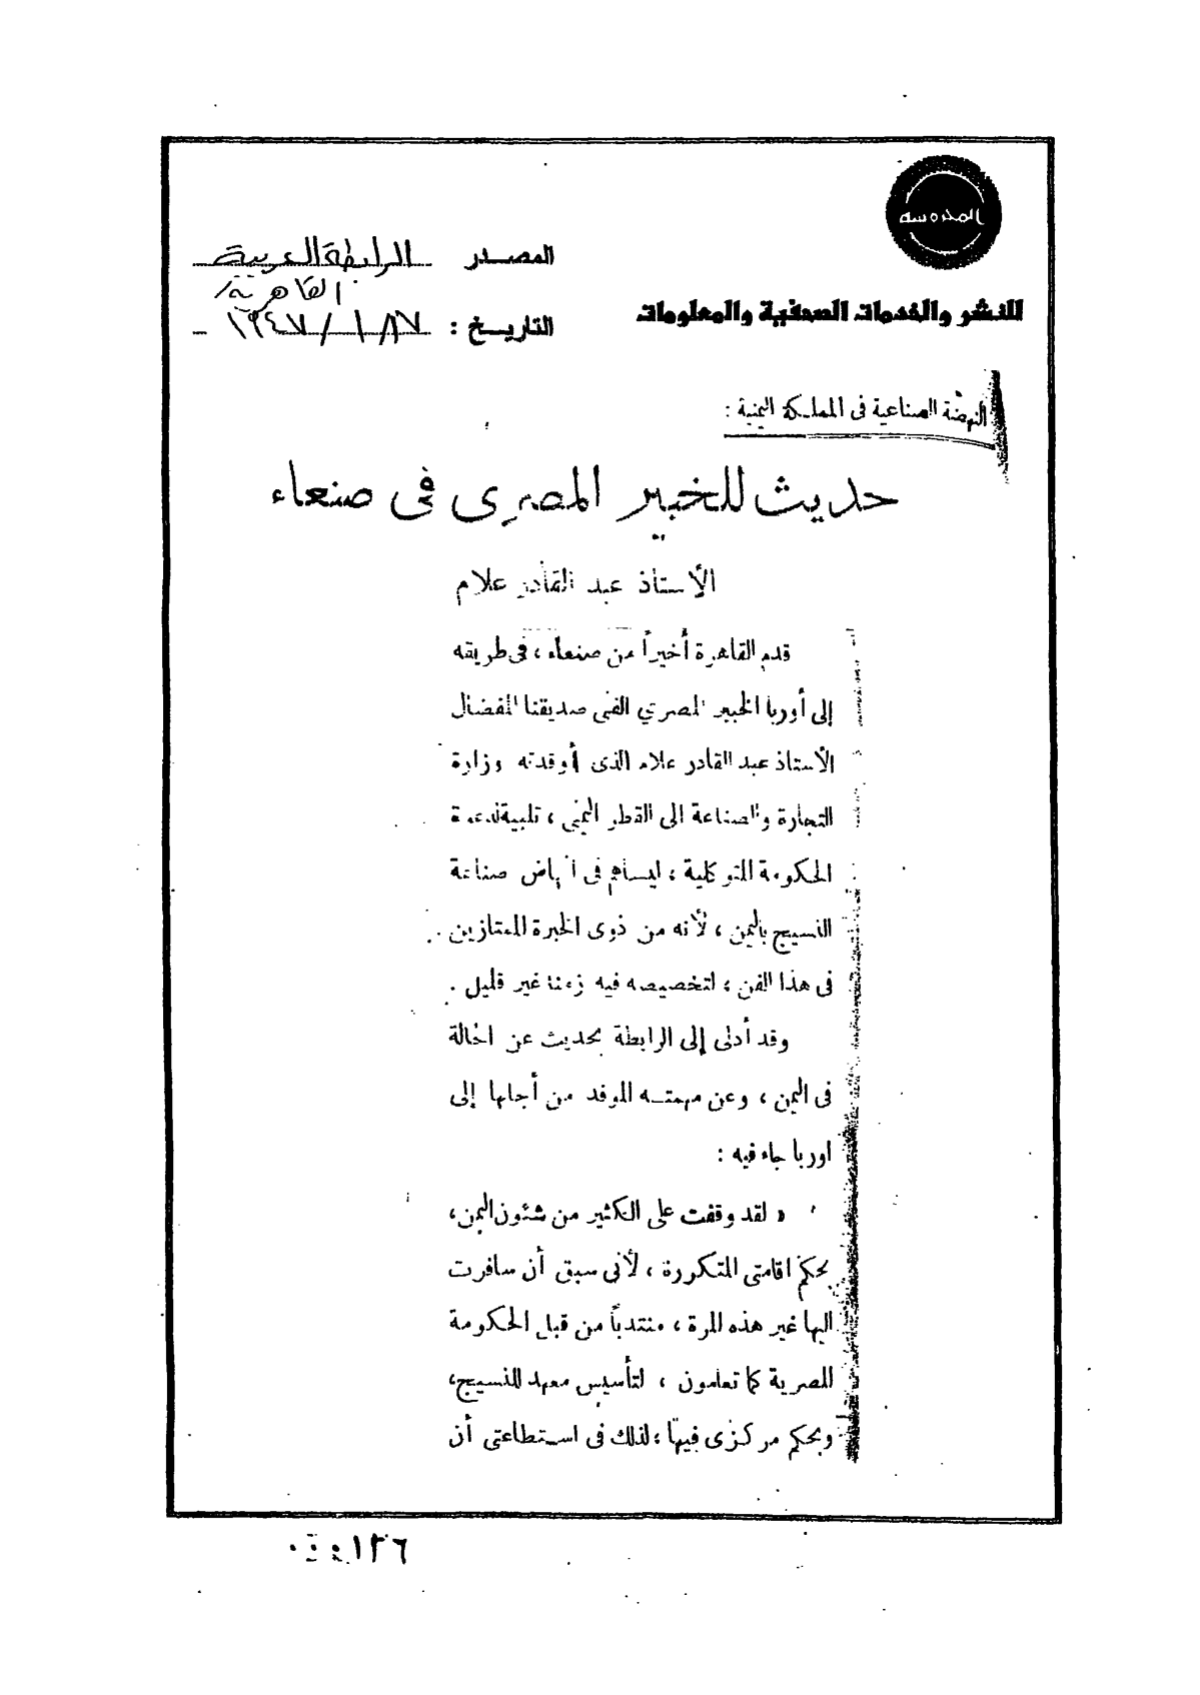 المحروسة
المصدر الرابطة العربية
القاهرية
للنشر والخدمات الصحفية والمعلومات
التاريخ :
النهضة الصناعية فى المملكة اليمنية :
حديث للخبير المصرى فى صنعاء
الأستاذ عبد القادر علام
قدم القاهرة أخيراً من صنعاء ، فى طريقه
إلى أوربا الخبير المصري الفنى صديقنا المفضال
الأستاذ عبد القادر علام الذى أوفدته وزارة
التجارة والصناعة الى القطر اليمنى ، تلبية لدعوة
الحكومة المتوكلية ، ليساهم فى انهاض صناعة
النسيج باليمن ، لأنه من ذوى الخبرة الممتازين
فى هذا الفن ، لتخصيصه فيه زمنا غير قليل .
وقد أدلى إلى الرابطة بحديث عن الحالة
فى اليمن ، وعن مهمته الموفد من أجلها إلى
اوربا جاء فيه :
« لقد وقفت على الكثير من شئون اليمن ،
بحكم اقامتى المتكررة ، لأنى سبق أن سافرت
اليها غير هذه المرة ، منتدباً من قبل الحكومة
المصرية كما تعلمون ، لتأسيس معهد للنسيج ،
وبحكم مركزى فيها ، لذلك فى استطاعتى أن